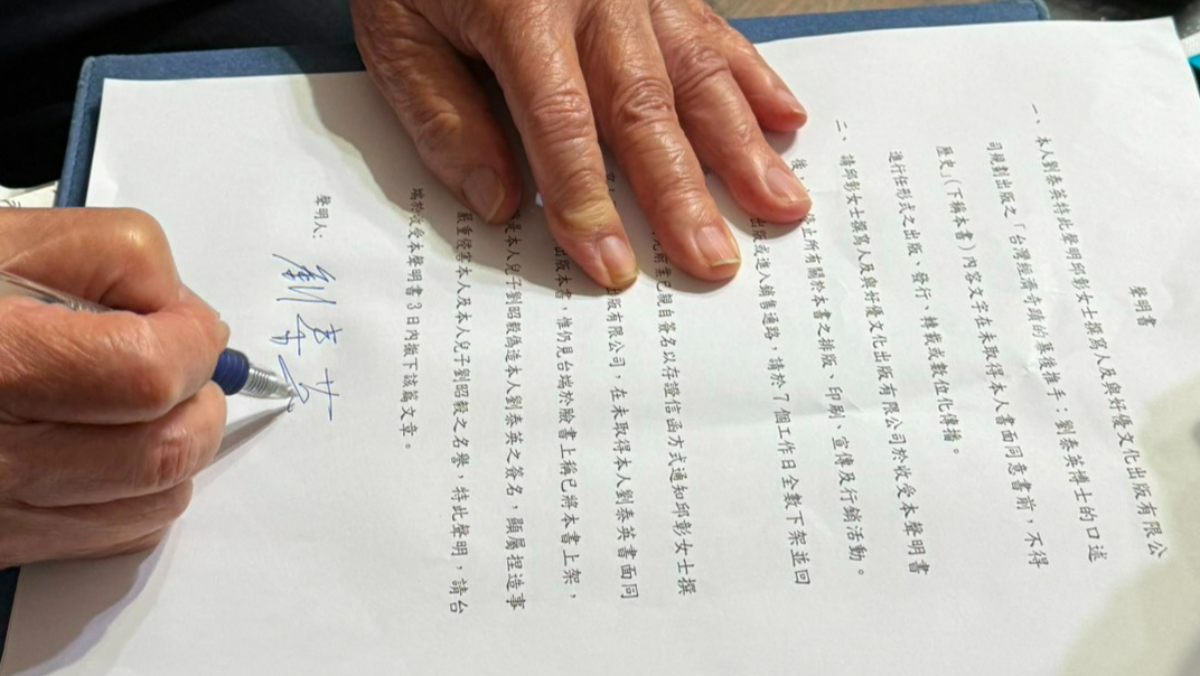 聲明書
一、本人劉泰英特此聲明邱彰女士撰寫人及與好優文化出版有限公
司規劃出版之「台灣經濟奇蹟的幕後推手：劉泰英博士的口述
歷史」(下稱本書)內容文字在未取得本人書面同意書前，不得
進行任形式之出版、發行、轉載或數位化傳播。
二、請邱彰女士撰寫人及與好優文化出版有限公司於收受本聲明書
後 停止所有關於本書之排版、印刷、宣傳及行銷活動。
出版或進入銷售通路，請於7個工作日全數下架並回
業已親自簽名以存證信函方式通知邱彰女士撰
出版有限公司，在未取得本人劉泰英書面同
出版本書，惟仍見台端於臉書上稱已將本書上架，
是本人兒子劉昭毅偽造本人劉泰英之簽名，顯屬捏造事
嚴重侵害本人及本人兒子劉昭毅之名譽，特此聲明，請台
端於收受本聲明書3日內撤下該篇文章。
聲明人：劉泰英